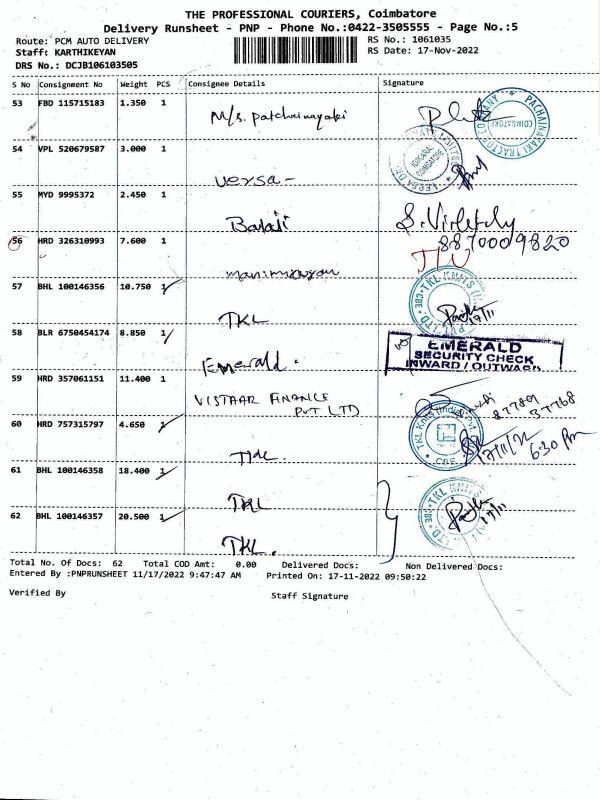 THE PROFESSIONAL COURIERS, Coimbatore
Delivery Runsheet - PNP - Phone No.:0422-3505555 - Page No.:5
Route: PCM AUTO DELIVERY RS No.: 1061035
Staff: KARTHIKEYAN RS Date: 17-Nov-2022
DRS No.: DCJB106103505
S No Consignment No Weight PCS Consignee Details Signature
53 FBD 115715183 1.350 1 M/s. Patchainayaki
PACHAINAYAKI TRACTOR COMPANY COIMBATORE
54 VPL 520679587 3.000 1 Versa -
55 MYD 9995372 2.450 1 Balaji
8870009820
56 HRD 326310993 7.600 1
57 BHL 100146356 10.750 1 TKL
17/11
58 BLR 6750454174 8.850 1 Emerald.
EMERALD
SECURITY CHECK
INWARD / OUTWARD
59 HRD 357061151 11.400 1 VISTAAR FINANCE
PVT LTD
87789
37768
60 HRD 757315797 4.650 1 TKL
17/11/22 6:30 Pm
61 BHL 100146358 18.400 1 TKL
17/11
62 BHL 100146357 20.500 1 TKL.
Total No. Of Docs: 62 Total COD Amt: 0.00 Delivered Docs: Non Delivered Docs:
Entered By :PNPRUNSHEET 11/17/2022 9:47:47 AM Printed On: 17-11-2022 09:50:22
Verified By Staff Signature